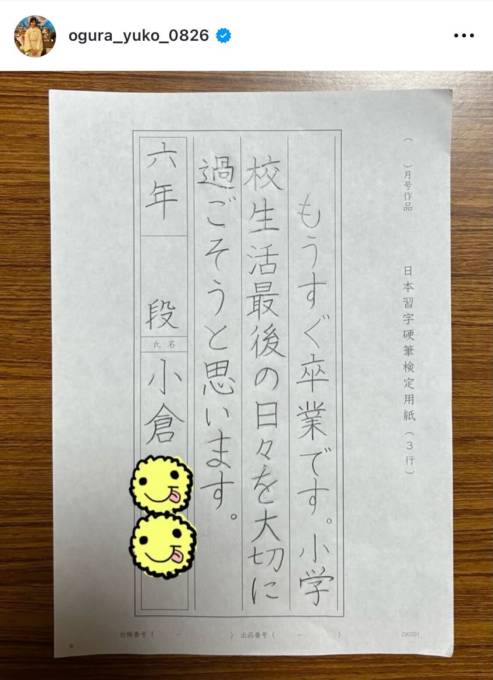 ogura_yuko_0826
( )月号作品
日本習字硬筆検定用紙(3行)
もうすぐ卒業です。小学
校生活最後の日々を大切に
過ごそうと思います。
六年
段
氏名
小倉
出品番号( - )